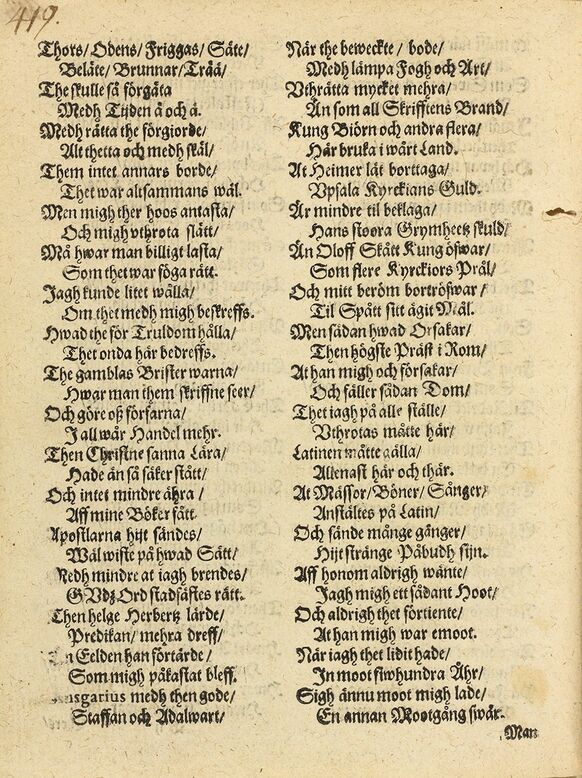 419.
Thors/ Odens/ Friggas/ Säte/
Beläte/ Brunnar/ Trää/
The skulle så förgäta
Medh Tijden å och å.
Medh rätta the förgiorde/
Alt thetta och medh skäl/
Them intet annars borde/
Thet war altsammans wäl.
Men migh ther hoos antasta/
Och migh vthrota slätt/
Må hwar man billigt lasta/
Som thet war föga rätt.
Jagh kunde litet wålla/
Om thet medh migh beskreffs.
Hwad the för Truldom hålla/
Thet onda här bedreffs.
The gamblas Brister warna/
Hwar man them skriffne seer/
Och göre oß förfarna/
J all wår Handel mehr.
Then Christne sanna Lära/
Hade än så säker stått/
Och intet mindre ähra/
Aff mine Böker fått.
Apostlarna hijt sändes/
Wäl wiste på hwad Sätt/
Redh mindre at iagh brendes/
GVdz Ord stadfästes rätt.
Then helge Herbertz lärde/
Predikan/ mehra dreff/
Eelden han förtärde/
Som migh påkastat bleff.
medh then gode/
Staffan och Adalwart/
När the beweckte/ bode/
Medh lämpa Fogh och Art/
Vthrätta mycket mehra/
Än som all Skrifftens Brand/
Kung Biörn och andra flera/
Här bruka i wårt Land.
At Heimer lät borttaga/
Vpsala Kyrckians Guld.
Är mindre til beklaga/
Hans stoora Grymheetz skuld/
Än Oloff Skått Kung öfwar/
Som flere Kyrckiors Präl/
Och mitt beröm bortröfwar/
Til Spått sitt ägit Mäl.
Men sådan hwad Orsakar/
Then högste Präst i Rom/
At han migh och försakar/
Och fäller sådan Dom/
Thet iagh på alle ställe/
Vthrotas måtte här/
Latinen måtte gälla/
Allenast här och thär.
At Mässor/ Böner/ Sånger/
Anstältes på Latin/
Och sände månge gånger/
Hijt stränge Påbudh sijn.
Aff honom aldrigh wänte/
Jagh migh ett sådant Hoot/
Och aldrigh thet förtiente/
At han migh war emoot.
När iagh thet lidit hade/
In moot fiwhundra Åhr/
Sigh ännu moot migh lade/
En annan Mootgång swår.
Man